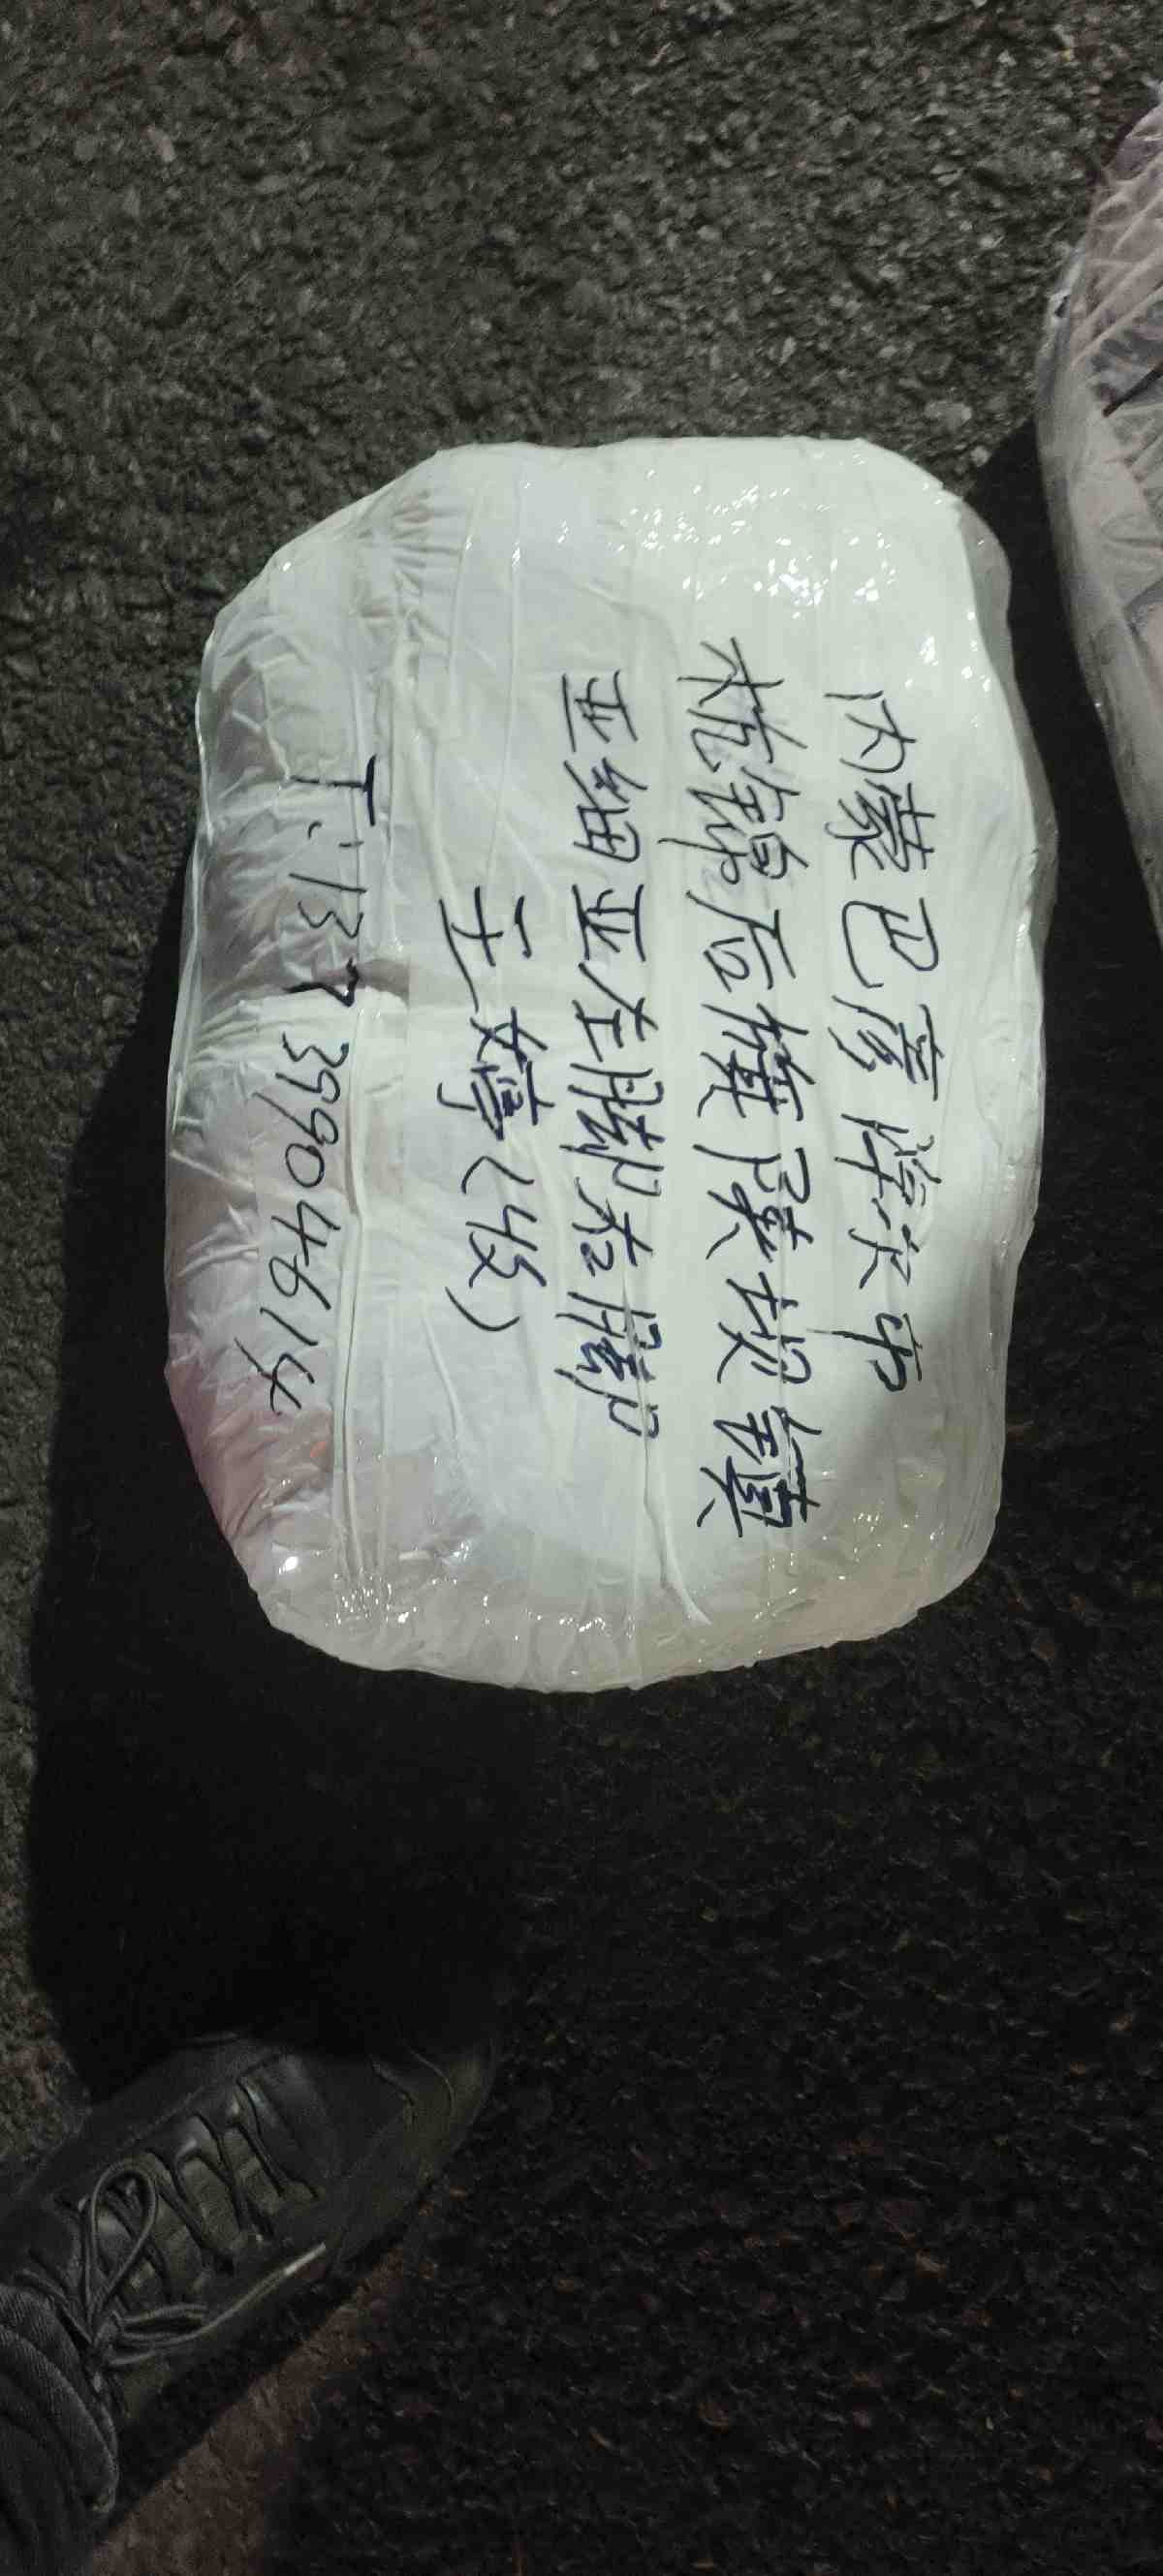 内蒙巴彦淖尔市
杭锦后旗陕坝镇
亚细亚左脚右脚
王婷(收)
T:13739904614